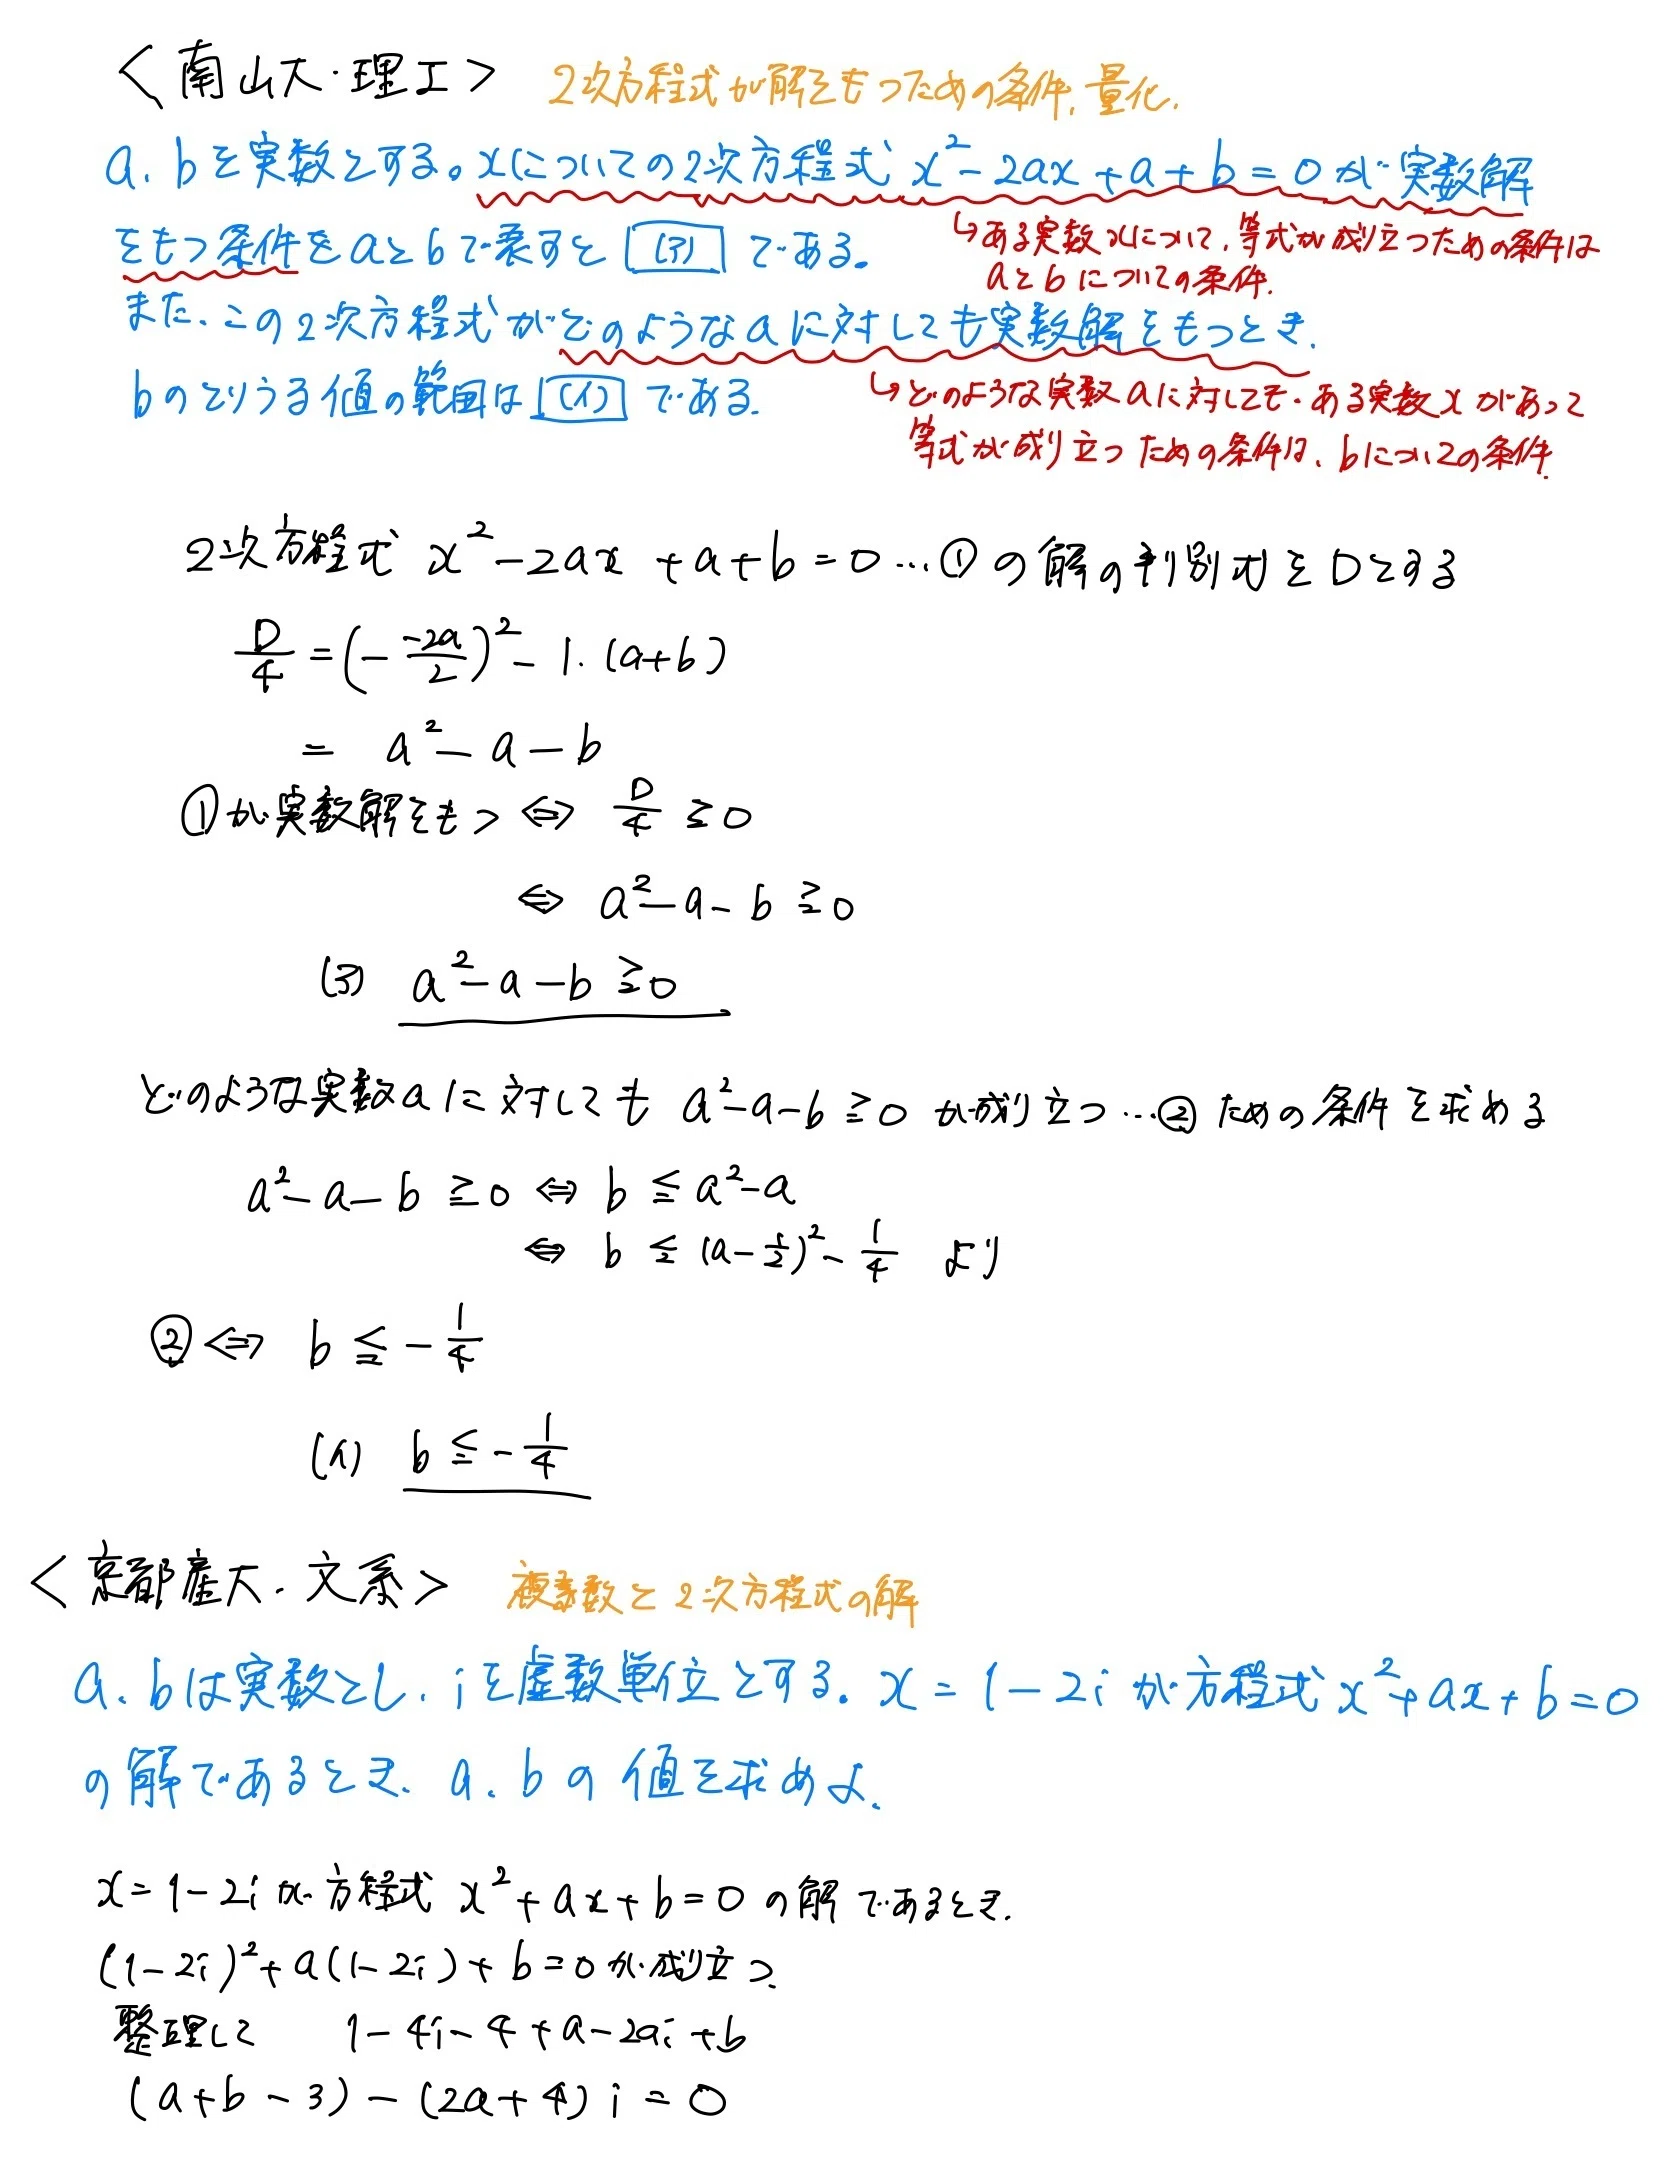 ＜南山大・理工＞ 2次方程式が解をもつための条件, 量化.
a, bを実数とする。xについての2次方程式 x²-2ax+a+b=0が実数解
をもつ条件をaとbで表すと (ア) である。
↳ある実数xについて, 等式が成り立つための条件は
aとbについての条件.
また、この2次方程式がどのようなaに対しても実数解をもつとき,
bのとりうる値の範囲は (イ) である.
↳どのような実数aに対しても、ある実数xがあって
等式が成り立つための条件は、bについての条件.
2次方程式 x²-2ax+a+b=0…① の解の判別式をDとする
D/4 = (- -2a/2)² - 1・(a+b)
= a²-a-b
①が実数解をもつ ⇔ D/4 ≧ 0
⇔ a²-a-b ≧ 0
(ア) a²-a-b ≧ 0
どのような実数aに対しても a²-a-b ≧ 0 が成り立つ…② ための条件を求める
a²-a-b ≧ 0 ⇔ b ≦ a²-a
⇔ b ≦ (a-1/2)² - 1/4 より
② ⇔ b ≦ -1/4
(イ) b ≦ -1/4
＜京都産大・文系＞ 複素数と2次方程式の解
a, bは実数とし, iを虚数単位とする. x=1-2i が方程式 x²+ax+b=0
の解であるとき, a, bの値を求めよ.
x=1-2i が方程式 x²+ax+b=0 の解であるとき.
(1-2i)²+a(1-2i)+b=0が成立つ.
整理して 1-4i-4+a-2ai+b
(a+b-3)-(2a+4)i=0